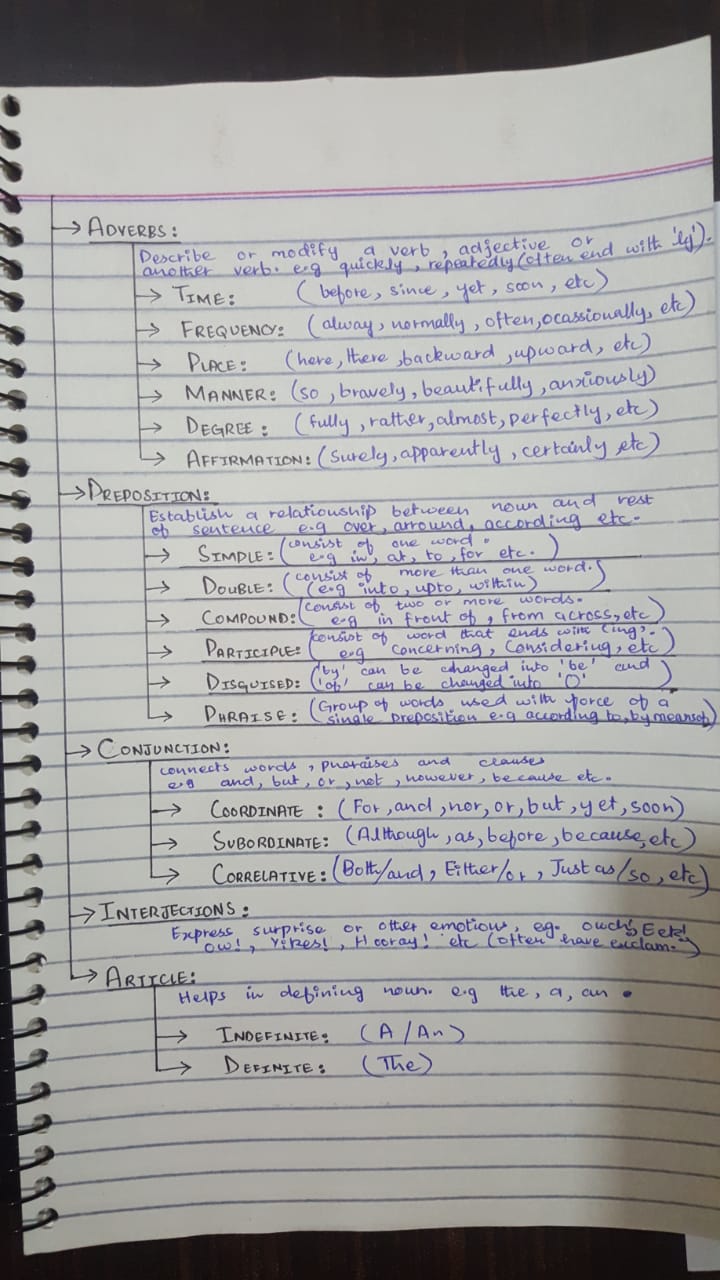 → ADVERBS:
Describe or modify a verb, adjective or
another verb. e.g quickly, repeatedly (often end with 'ly').
→ TIME: (before, since, yet, soon, etc)
→ FREQUENCY: (alway, normally, often, ocassionally, etc)
→ PLACE: (here, there, backward, upward, etc)
→ MANNER: (so, bravely, beautifully, anxiously)
→ DEGREE: (fully, rather, almost, perfectly, etc)
→ AFFIRMATION: (Surely, apparently, certainly etc)
→ PREPOSITION:
Establish a relationship between noun and rest
of sentence e.g over, arround, according etc.
→ SIMPLE: (consist of one word.
e.g in, at, to, for etc.)
→ DOUBLE: (consist of more than one word.
(e.g into, upto, within)
→ COMPOUND: (consist of two or more words.
e.g in front of, from across, etc)
→ PARTICIPLE: (consist of word that ends with 'ing'.
e.g concerning, Considering, etc)
→ DISGUISED: ('by' can be changed into 'be' and
'of' can be changed into 'O')
→ PHRAISE: (Group of words used with force of a
single preposition e.g according to, by means of)
→ CONJUNCTION:
connects words, pharaises and clauses
e.g and, but, or, not, however, because etc.
→ COORDINATE: (For, and, nor, or, but, yet, soon)
→ SUBORDINATE: (Although, as, before, because, etc)
→ CORRELATIVE: (Both/and, Either/or, Just as/so, etc)
→ INTERJECTIONS:
Express surprise or other emotions, eg. ouch!, Eek!
ow!, Yikes!, Hooray! etc (often have exclam.)
→ ARTICLE:
Helps in defining noun. e.g the, a, an.
→ INDEFINITE: (A/An)
→ DEFINITE: (The)